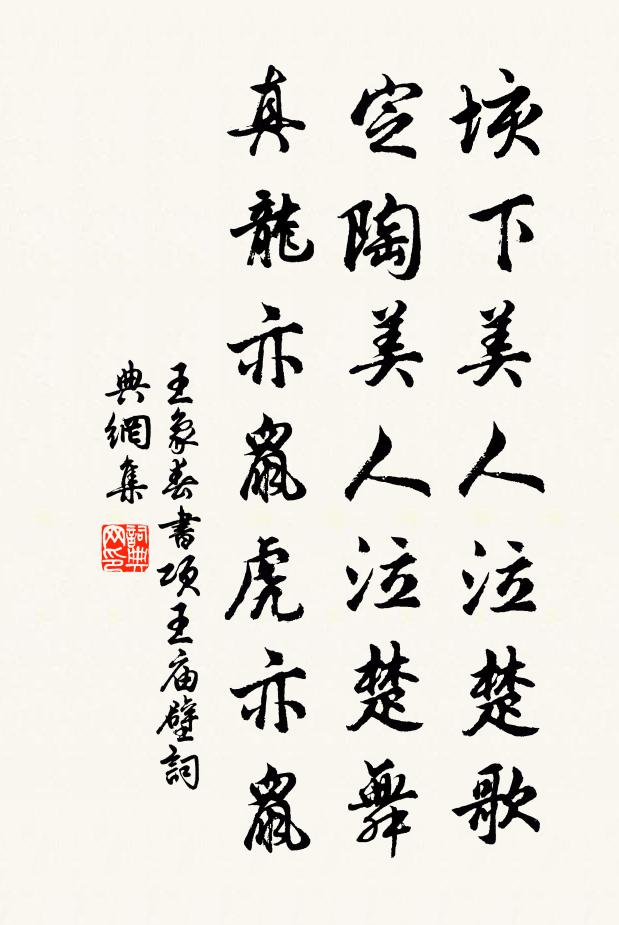 垓下美人泣楚歌
定陶美人泣楚舞
真龍亦鼠虎亦鼠
王象春書項王庙壁詞
典網集
詞典网印